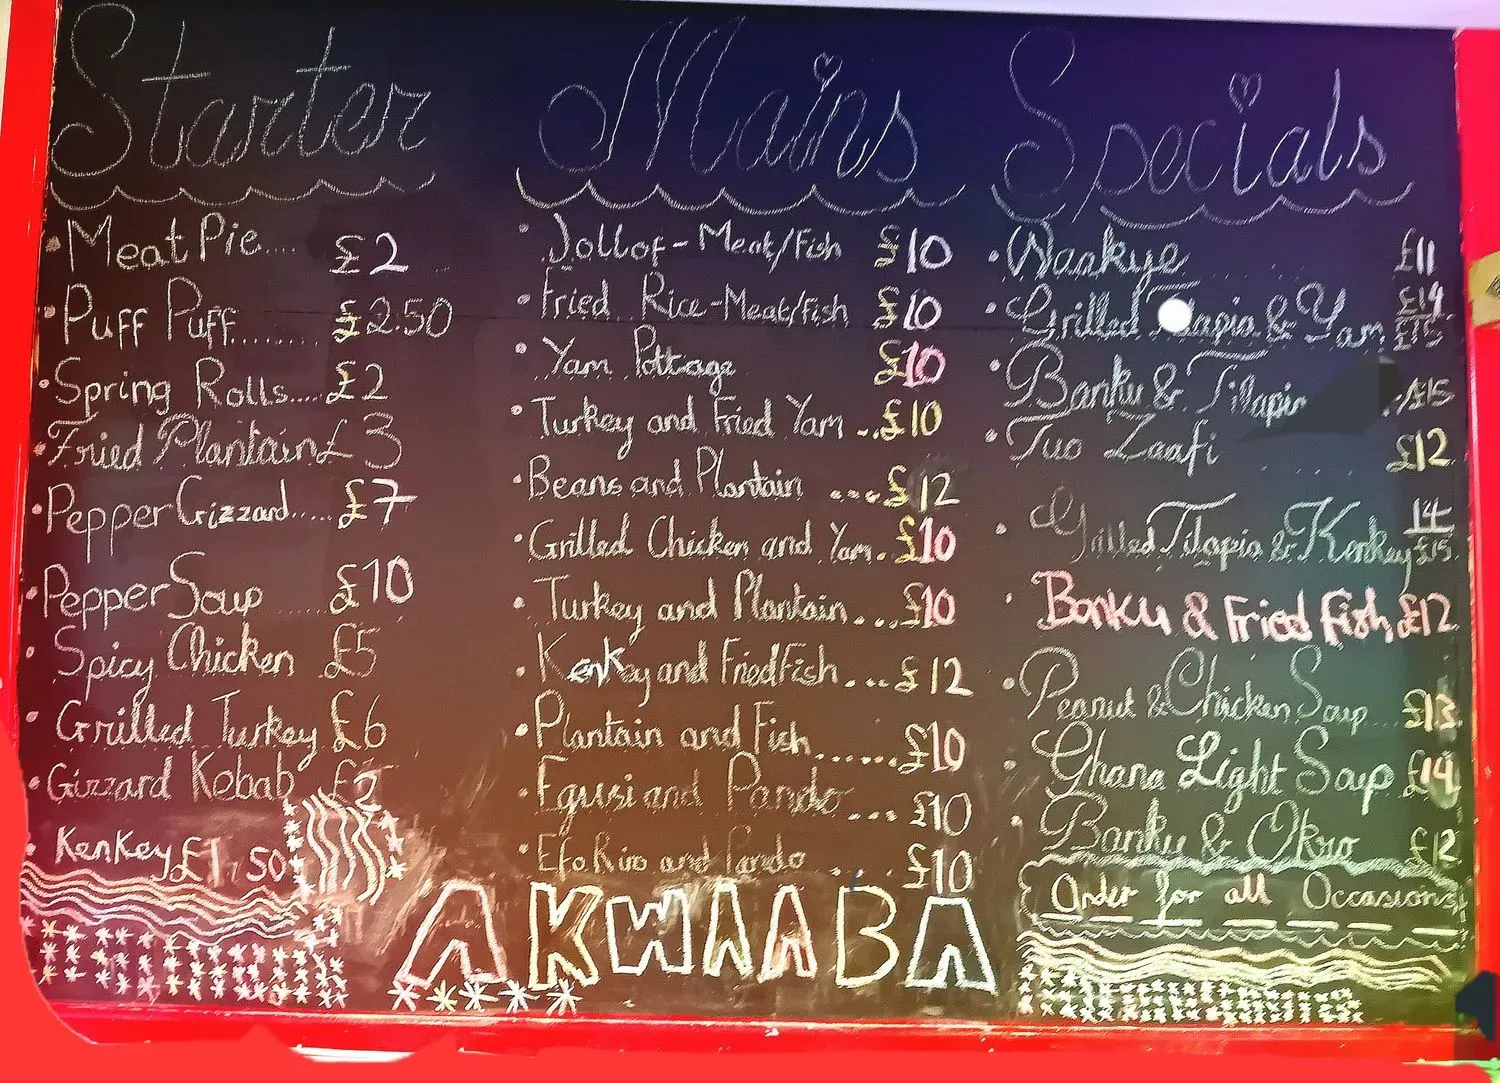 Starter
·Meat Pie.... £2
·Puff Puff........ £2.50
·Spring Rolls.... £2
·Fried Plantain £3
·Pepper Gizzard..... £7
·Pepper Soup ..... £10
·Spicy Chicken £5
·Grilled Turkey £6
·Gizzard Kebab £2
·Kenkey £1.50
Mains
·Jollof - Meat/Fish £10
·Fried Rice-Meat/fish £10
·Yam Pottage £10
·Turkey and Fried Yam ... £10
·Beans and Plantain .... £12
·Grilled Chicken and Yam. £10
·Turkey and Plantain.... £10
·Kenkey and Fried Fish.... £12
·Plantain and Fish....... £10
·Egusi and Pando .... £10
·Efo Riro and Pando .... £10
Specials
·Waakye £11
·Grilled Tilapia & Yam £14 £15
·Banku & Tilapia £15
·Tuo Zaafi £12
·Grilled Tilapia & Kenkey 14 £15
·Banku & Fried Fish £12
·Peanut & Chicken Soup £13
·Ghana Light Soup £14
·Banku & Okro £12
Order for all Occasions
AKWAABA